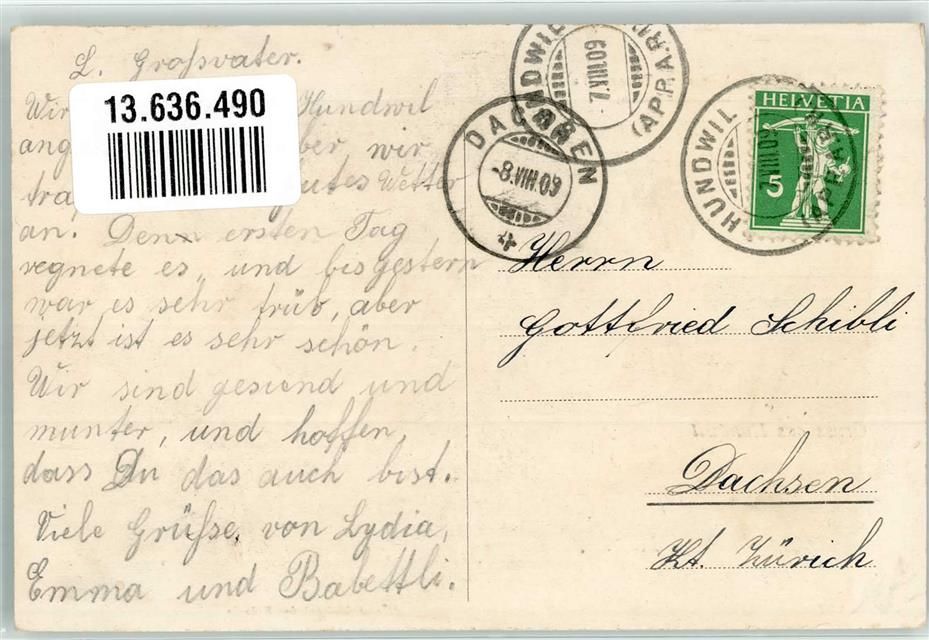 L. Großvater.
13.636.490
Wir Hundwil
ang ber wir
tra gutes Wetter
an. Denn ersten Tag
regnete es, und bis gestern
war es sehr trüb, aber
jetzt ist es sehr schön.
Wir sind gesund und
munter, und hoffen,
dass Du das auch bist.
Viele Grüße, von Lydia,
Emma und Babettli.
HUNDWIL
7.VIII.09
(APP.A.RH
DACHSEN
-8.VIII.09
HELVETIA
5
HUNDWIL
7.VIII.09
Herrn
Gottfried Schibli
Dachsen
Kt. Zürich